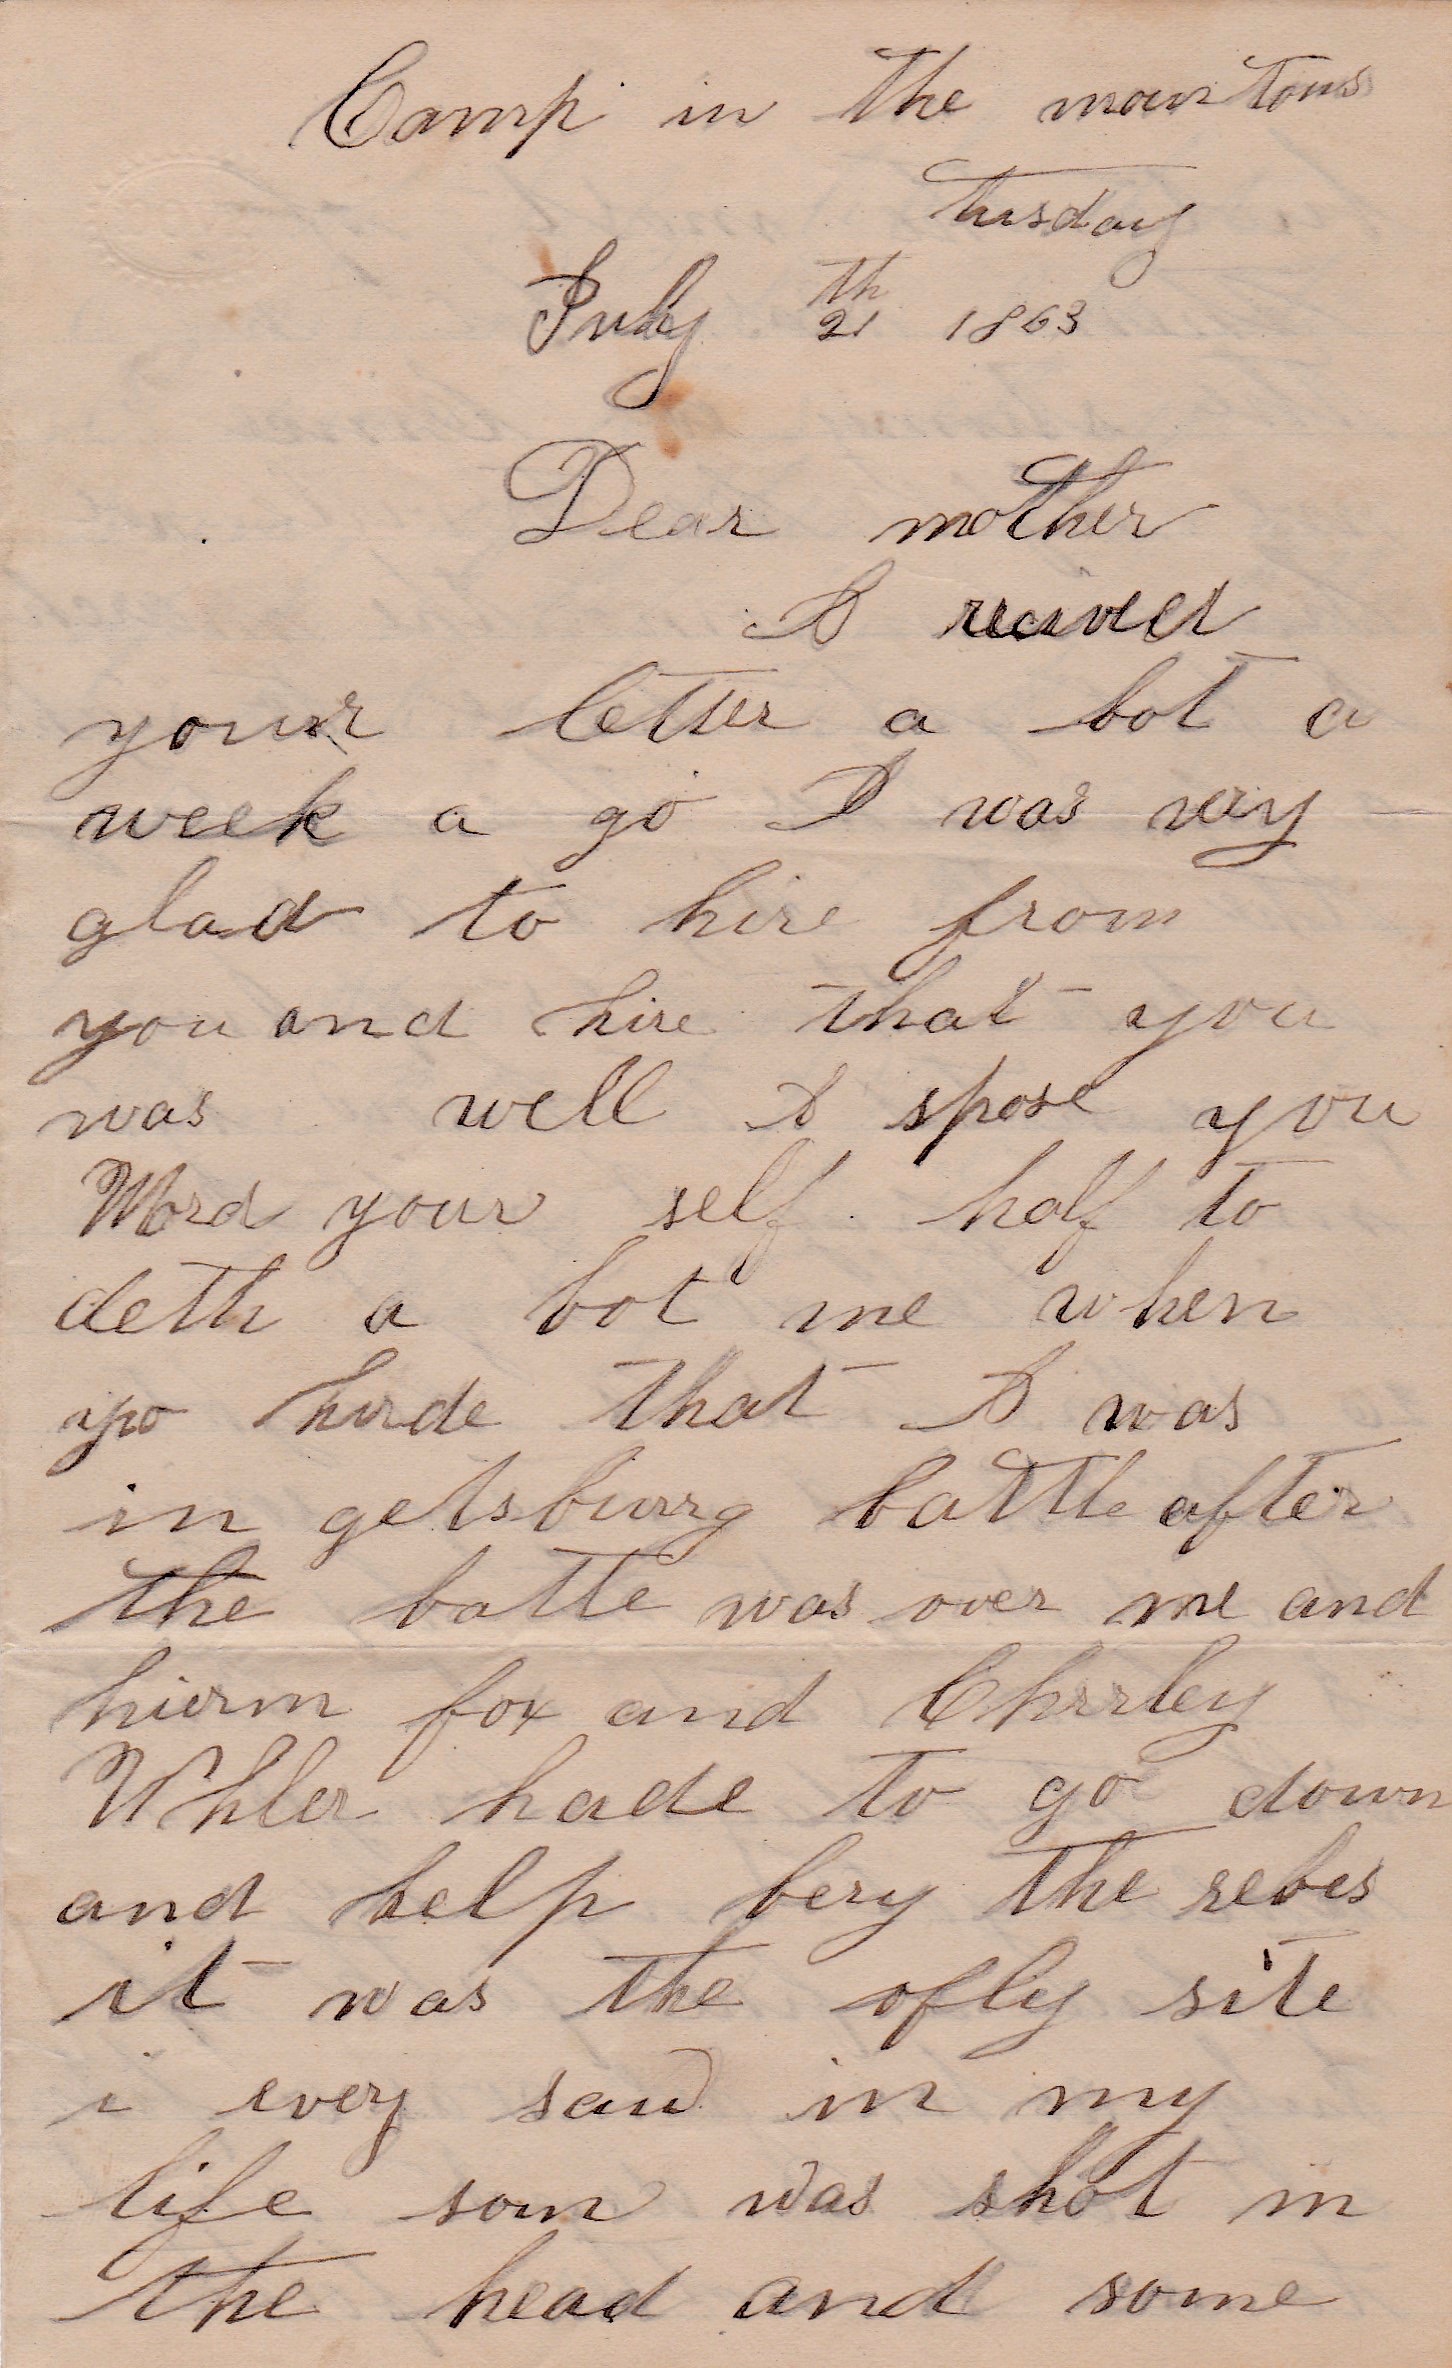 Camp in the mountons
tusday
July 21th 1863
Dear mother
I recived
your letter a bot a
week a go I was very
glad to hire from
you and hire that you
was well I spose you
Word your self half to
deth a bot me when
yo hirde that I was
in getsburrg battle after
the batle was over me and
hierm fox and Chrrley
Whler hade to go down
and help bery the rebes
it was the ofly site
i every saw in my
life som was shot in
the head and some